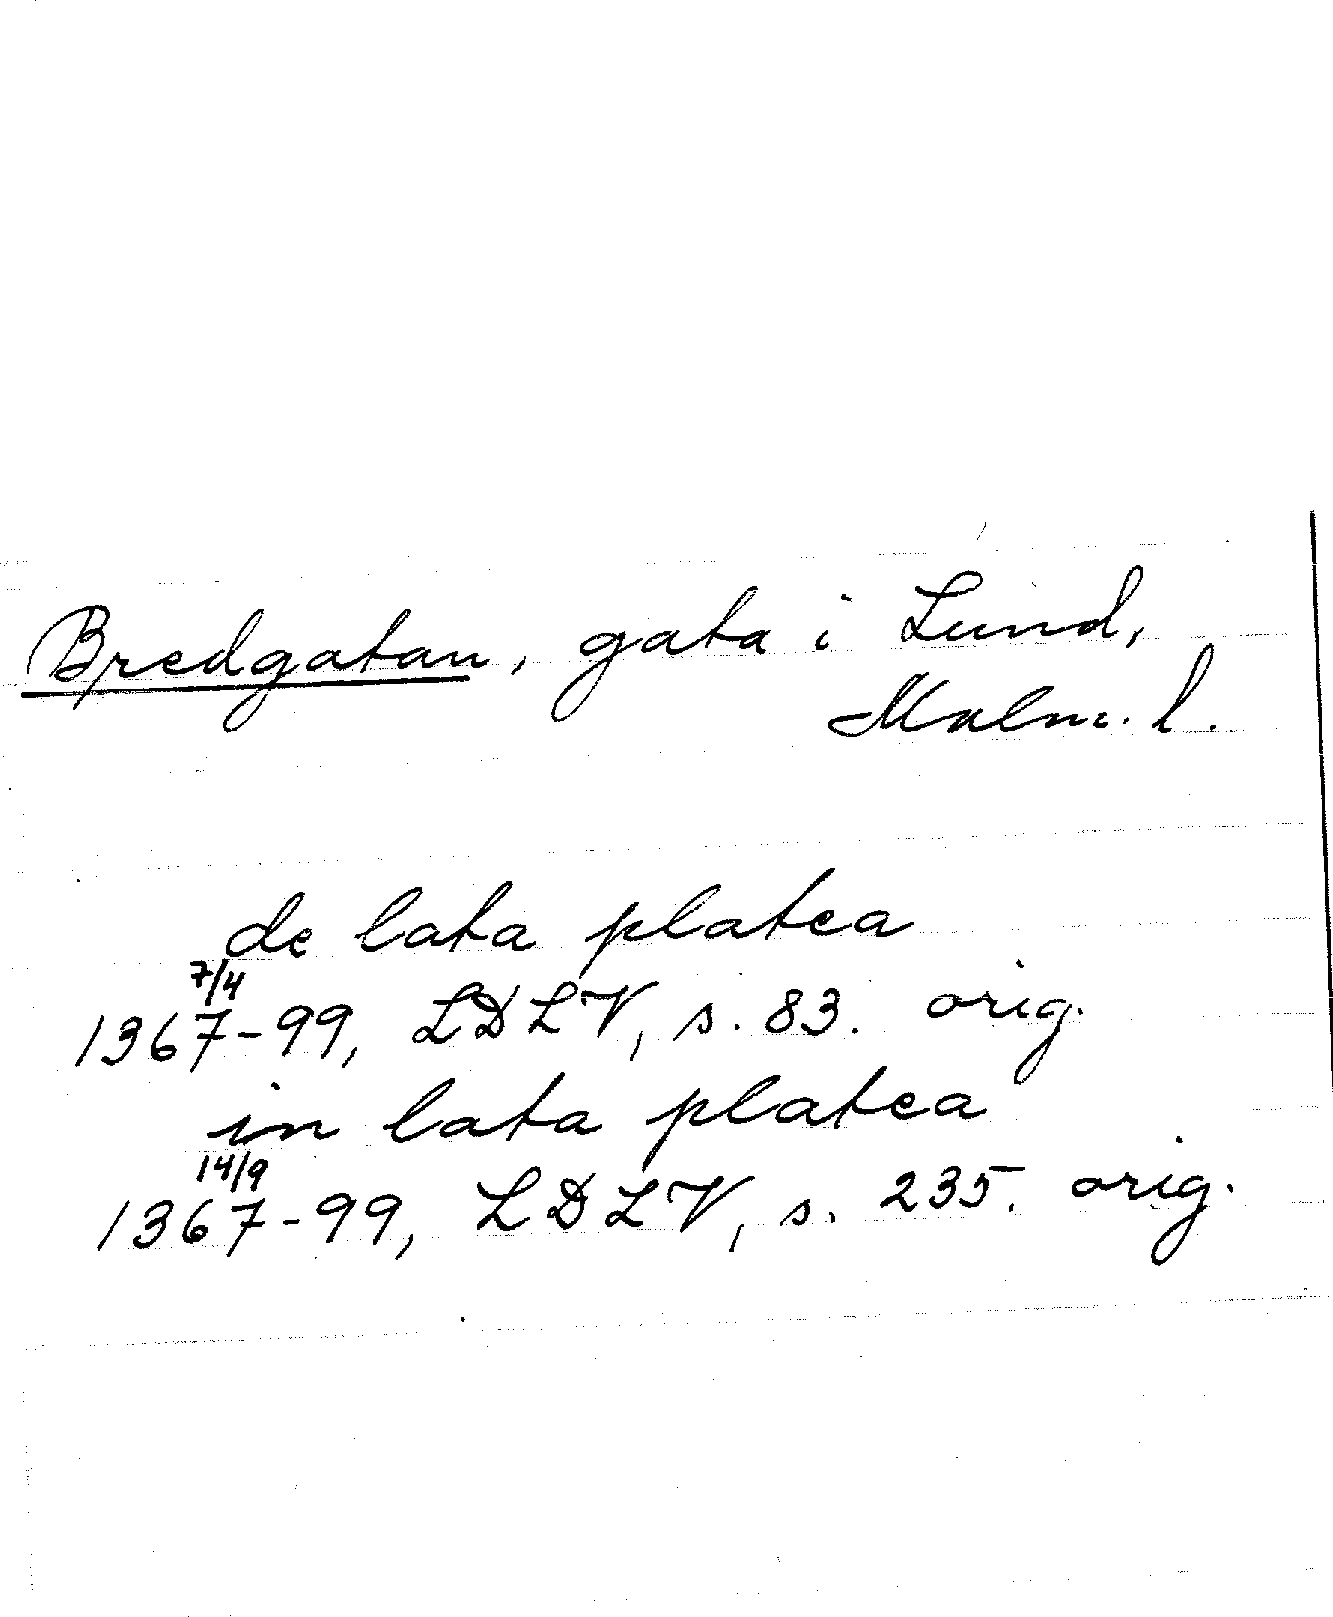 Bredgatan, gata i Lund,
Malm. l.
de lata platea
7/4
1367-99, LDLV, s. 83. orig.
in lata platea
14/9
1367-99, LDLV, s. 235. orig.